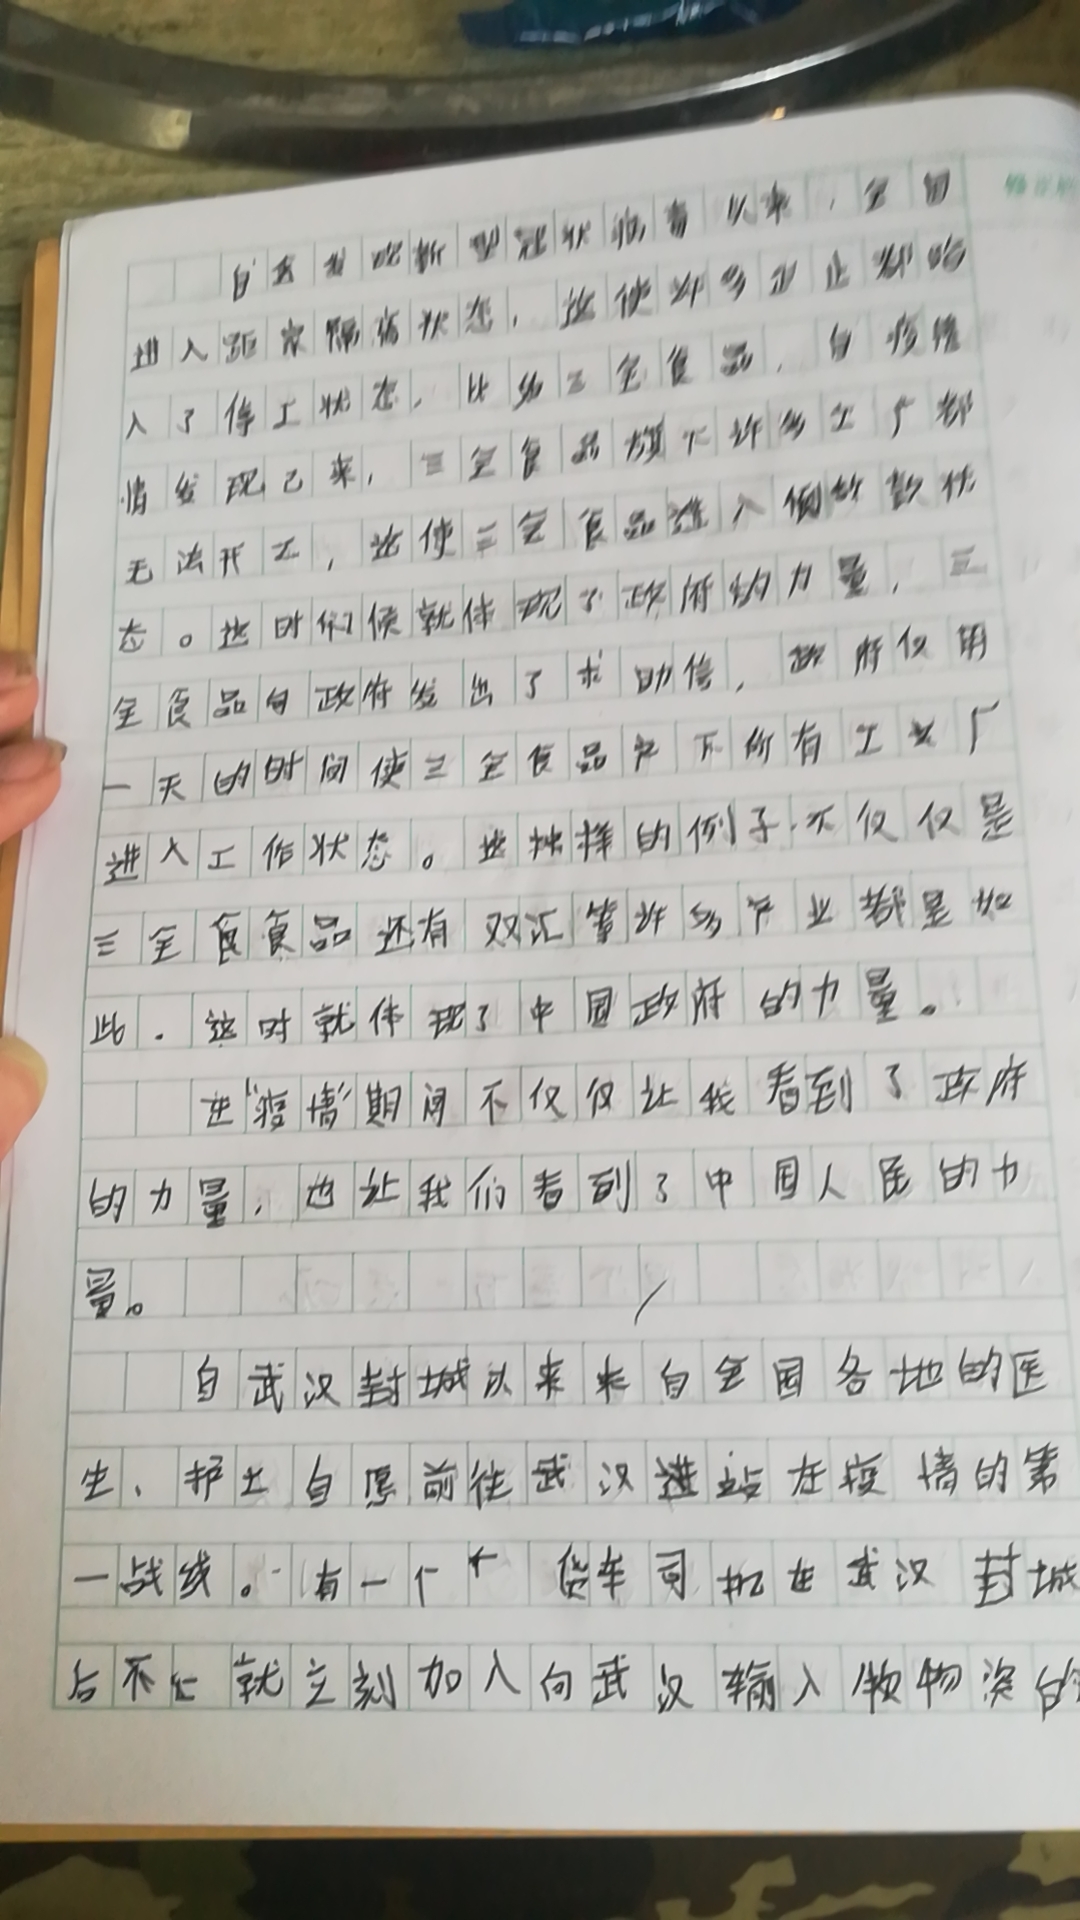 自去发现新型冠状病毒以来，全国
进入距家隔离状态，这使许多企止都
入了停工状态，比如三全食品，自疫情
情发现已来，三全食品旗下许多工厂都
无法开工，这使三全食品进入倒款状
态。这时候就体现了政府的力量，三
全食品向政府发出了求助信，政府仅用
一天的时间使三全食品产下所有工厂
进入工作状态。这样的例子不仅仅是
三全食食品还有双汇等许多产业都是如
此．这时就体现了中国政府的力量。
在“疫情”期间不仅仅让我看到了政府
的力量，也让我们看到了中国人民的力
量。
自武汉封城以来来自全国各地的医
生、护士自愿前往武汉进站在疫情的第
一战线。有一个个货车司机在武汉封城
后不就立刻加入向武汉输入物资的